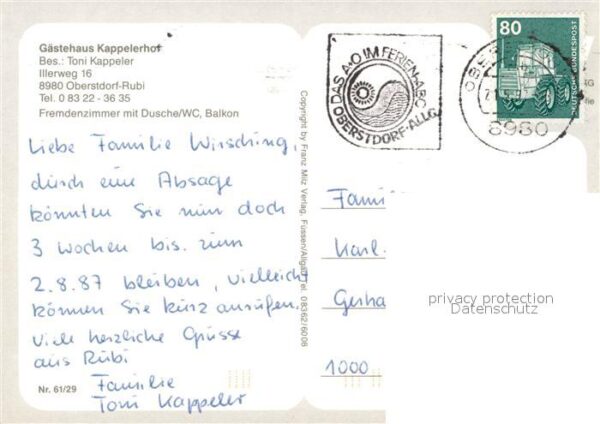 Gästehaus Kappelerhof
Bes.: Toni Kappeler
Illerweg 16
8980 Oberstdorf-Rubi
Tel. 0 83 22 - 36 35
Fremdenzimmer mit Dusche/WC, Balkon
Liebe Familie Wirsching,
durch eine Absage
könnten Sie nun doch
3 Wochen bis zum
2.8.87 bleiben, vielleicht
können Sie kurz anrufen.
Viele herzliche Grüsse
aus Rubi
Familie
Toni Kappeler
Nr. 61/29
Copyright by Franz Milz Verlag, Füssen/Allgäu Tel. 08362/6008
DAS A+O IM FERIEN-ABC
OBERSTDORF-ALLG.
80
DEUTSCHE BUNDESPOST
8980
Fami
Karl.
Gerha
1000
privacy protection
Datenschutz